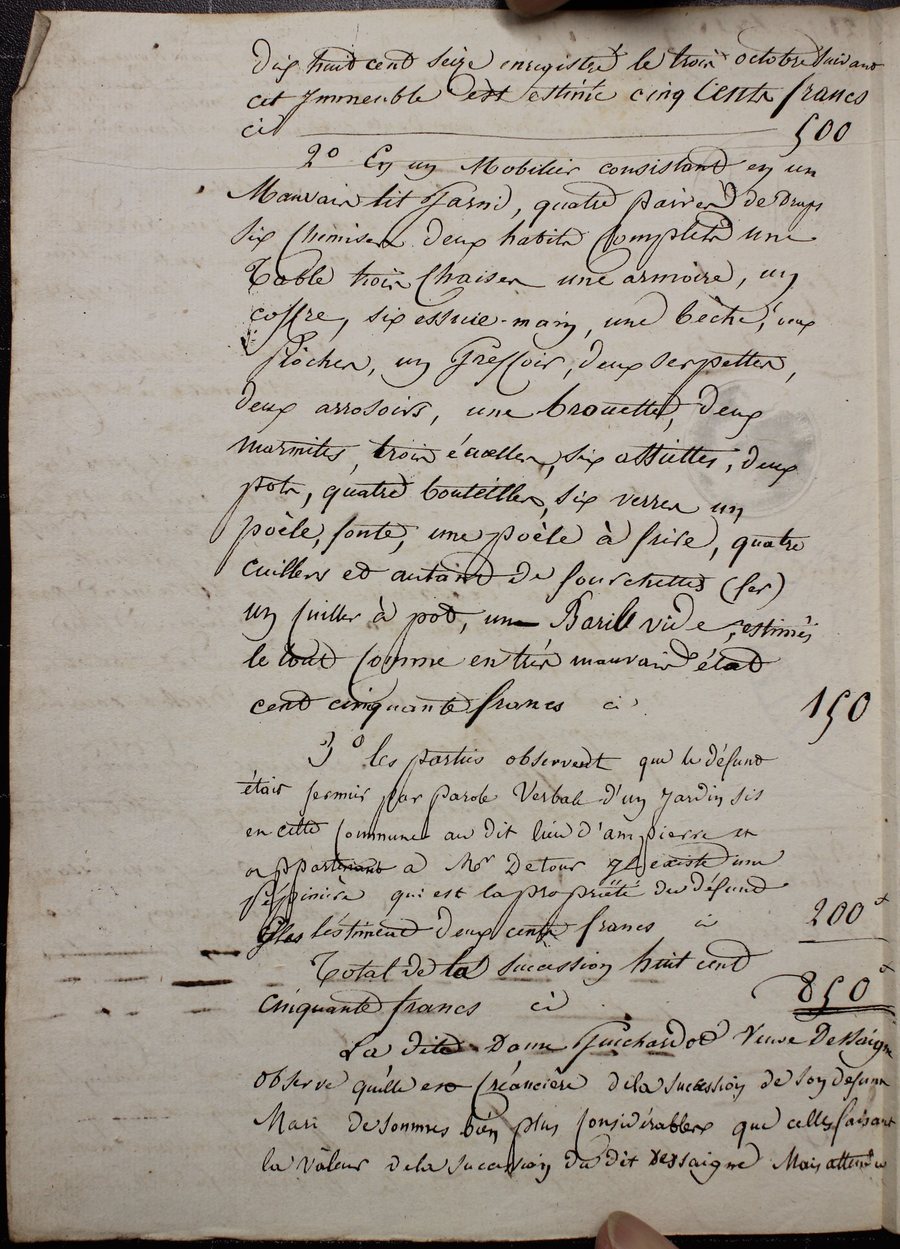 Dix huit cent seize enregistré le trois octobre suivant
cet immeuble est estimé cinq Cents francs
ci 500
2° En un Mobilier consistant en un
Mauvais lit Garni, quatre paires de Draps
six Chemises deux habits Complets une
Table trois Chaises une armoire, un
coffre, six essuie-main, une bèche, deux
pioches, un Gressoir, deux serpettes,
deux arrosoirs, une brouette, deux
marmites, trois écuelles, six assiettes, deux
pots, quatre bouteilles, six verres un
poèle, fonte, une poèle à frire, quatre
cuillers et autant de fourchettes (fer)
un Cuiller à pot, un Barill vide, estimés
le tout Comme en très mauvais état
cent cinquante francs ci 150
3° les parties observent que le défunt
étais fermier par parole Verbale d'un jardin sis
en cette Commune au dit lieu d'ampierre et
appartenant a Mr Detour il existe une
pépinière qui est la propriété du défunt
Elles l'estiment deux cents francs ci 200
Total de la succession huit cent
cinquante francs ci 850
La dite Dame Guichardot Veuve Dessaigne
observe qu'elle est Créancière de la succession de son défunt
Mari de sommes bien plus Considérables que celles faisant
la valeur de la succession du dit Dessaigne Mais attendu